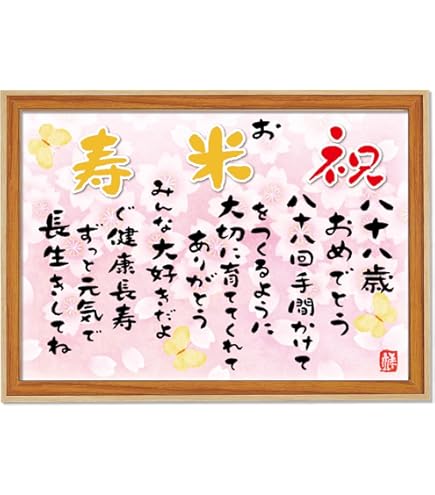 祝
八十八歳
おめでとう
八十八回手間かけて
お米
をつくるように
大切に育ててくれて
ありがとう
みんな大好きだよ
寿
ご健康長寿
ずっと元気で
長生きしてね